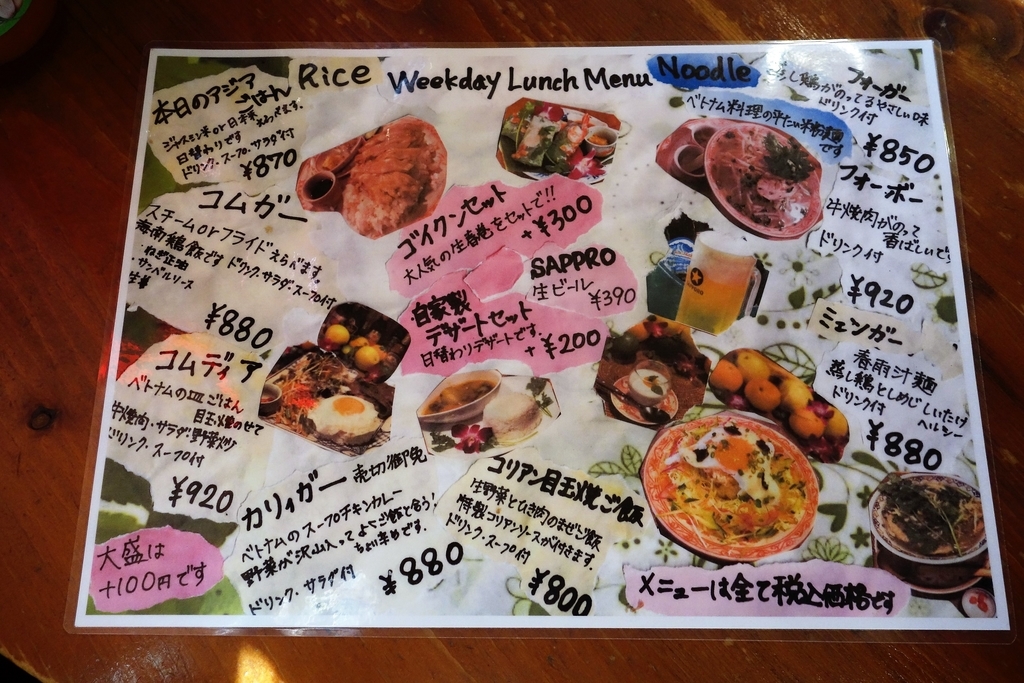 Rice
Weekday Lunch Menu
Noodle
本日のアジア
ごはん
ジャスミン米or日本米
えらべます。
日替わりです
ドリンク・スープ・サラダ付
¥870
コムガー
スチームorフライドえらべます。
海南鶏飯です ドリンク・サラダ・スープ付
・ねぎ正油
・サンベルソース
生姜
¥880
コムディア
ベトナムの皿ごはん
目玉焼のせて
牛焼肉・サラダ・野菜炒
ドリンク・スープ付
¥920
大盛は
+100円です
ゴイクンセット
大人気の生春巻をセットで!!
+¥300
SAPPRO
生ビール
¥390
自家製
デザートセット
日替わりデザートです。
+¥200
カリィガー 売切御免
ベトナムのスープチキンカレー
野菜が沢山入ってよくご飯と合う!
ちょい辛めです。
ドリンク・サラダ付
¥880
コリアン目玉焼ご飯
生野菜とひき肉のまぜご飯
特製コリアンソースが付きます。
ドリンク・スープ付
¥800
フォーガー
蒸し鶏がのってるやさしい味
ドリンク付
ベトナム料理の平たい米粉麺
です
¥850
フォーボー
牛焼肉がのって
香ばしいです
ドリンク付
¥920
ミェンガー
春雨汁麺
蒸し鶏としめじしいたけ
ドリンク付
ヘルシー
¥880
メニューは全て税込価格です